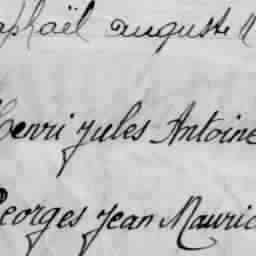 aphaël auguste
Henri Jules Antoine
Georges Jean Mauric